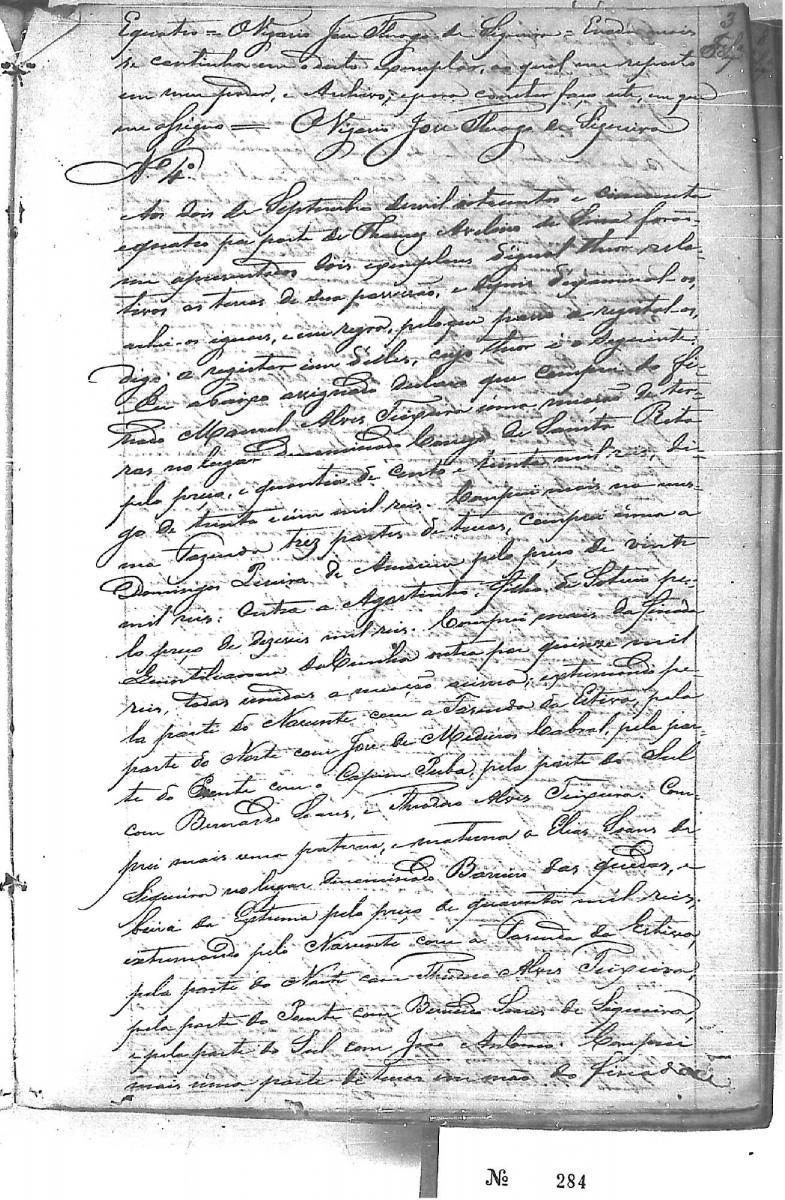 3
Equatro = O Vigario José Thiago de Siqueira = Enada mais
se continha em o dito exemplar, o qual me reporto
em meu poder, e Archivo; e para constar faço este, em que
me assigno = O Vigario José Thiago de Siqueira
Nº 4º
Aos dois de Septembro de mil oitocentos e cincoenta
equatro por parte de Thomaz Avelino de Sousa forão-
me apresentados dois exemplares d'igual theor rela-
tivos as terras de sua possessão, e depois d'examinal-os,
achei-os iguaes, e em regra, pelo que passo a registal-os,
digo, a registar um d'elles, cujo theor é o seguinte:
Eu abaixo assignado declaro que comprei ao fi-
nado Manoel Alves Teixeira uma porção de ter-
ras no lugar denominado Corrego de Santa Rita
pelo preço, e quantia de cento e trinta mil reis, di-
go de trinta e um mil reis. Comprei mais na mes-
ma Fazenda trez partes de terras, comprei uma a
Domingos Pereira de Amorim pelo preço de vinte
mil reis: outra a Agostinho, filho de Soterio pe-
lo preço de dezeseis mil reis. Comprei mais da finada
Quintilianna da Cunha outra por quinze mil
reis, todas unidas a porção acima; extremando pe-
la parte do Nascente com a Fazenda da Estiva, pela
parte do Norte com José de Medeiros Cabral, pela par-
te do Poente com o Capim Puba, pela parte do Sul
com Bernardo Soares, e Theodoro Alves Teixeira. Com-
prei mais uma paterna, e materna a Elias Soares de
Siqueira no lugar denominado Barreiro das quedas, e
beira da Extrema pelo preço de quarenta mil reis,
extremando pelo Nascente com a Fazenda da Estiva,
pela parte do Norte com Theodoro Alves Teixeira,
pela parte do Poente com Bernardo Soares de Siqueira,
e pela parte do Sul com João Antonio. Comprei
mais uma parte de terras em mão do finado
Nº 284